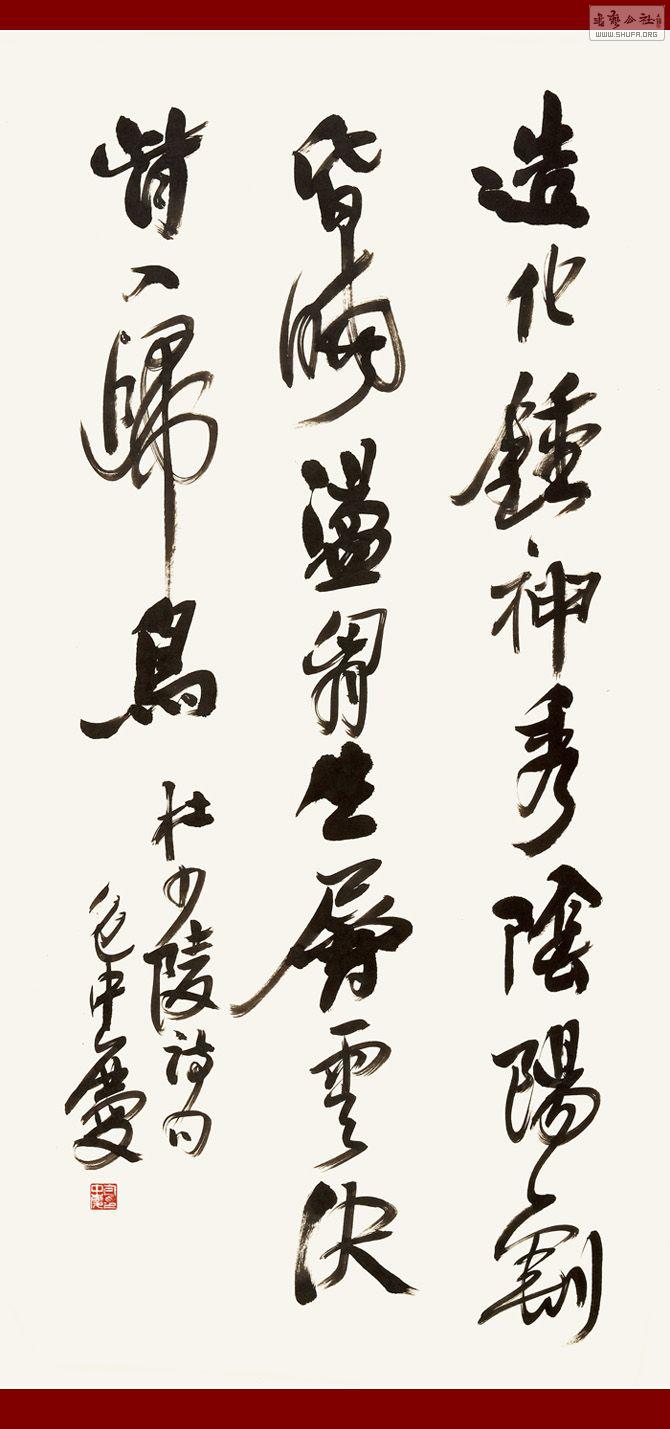 造化鍾神秀陰陽割
昏曉盪胷生層雲決
眥入歸鳥
杜少陵詩句
包中慶
書藝公社
WWW.SHUFA.ORG